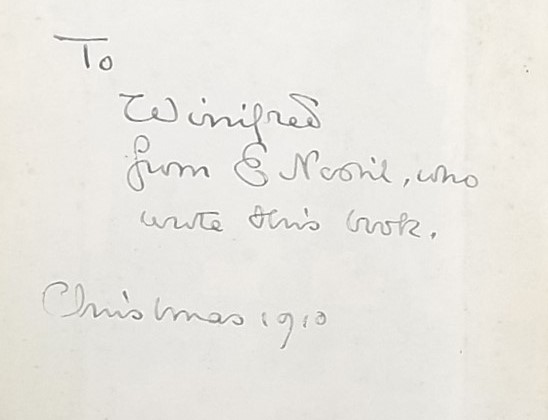 To
Winifred
from E Nesbit, who
wrote this book.
Christmas 1910